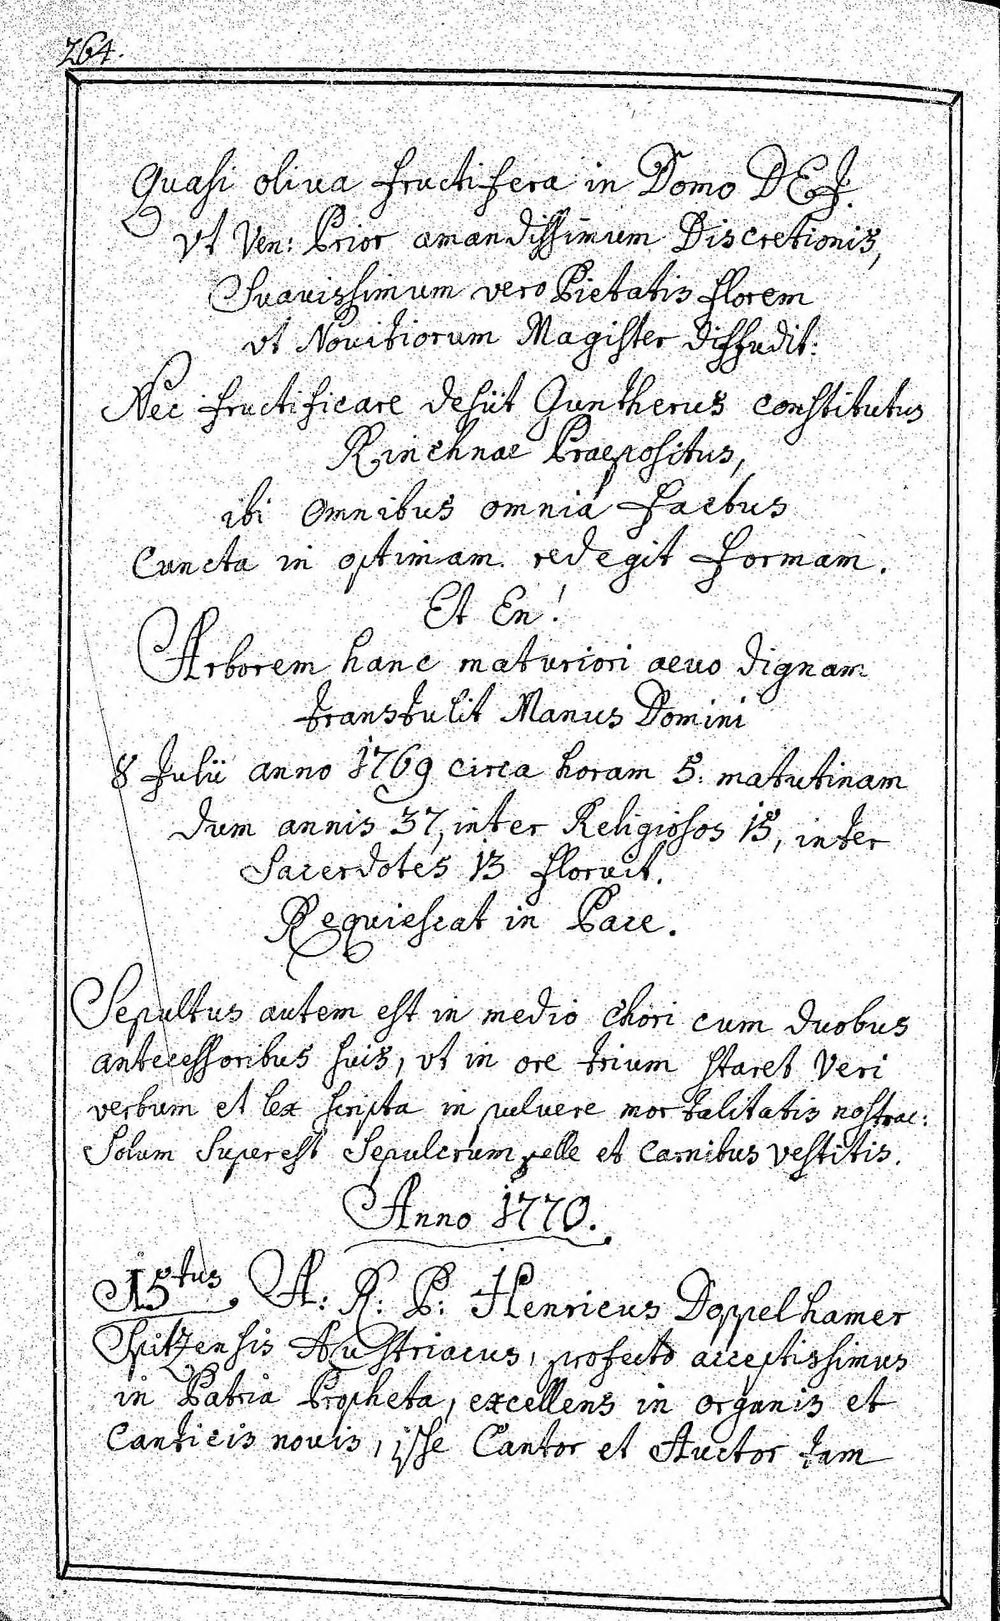 264.
Quasi oliva fructifera in Domo DEI.
vt Ven: Prior amandissimum Discretionis,
Suauissimum vero Pietatis florem
vt Nouitiorum Magister diffudit:
Nec fructificare desiit Guntherus constitutus
Rinchnae Praepositus,
ibi omnibus omnia factus
Cuncta in optimam redegit formam.
Et En!
Arborem hanc maturiori aeuo dignam
transtulit Manus Domini
8 Julii anno 1769 circa horam 5. matutinam
dum annis 37, inter Religiosos 18, inter
Sacerdotes 13 floruit.
Requiescat in Pace.
Sepultus autem est in medio Chori cum duobus
antecessoribus suis, vt in ore trium staret Veri
verbum et lex scripta in puluere mortalitatis nostrae:
Solum Superest Sepulcrum pelle et carnibus vestitis.
Anno 1770.
15tus. A: R: P: Henricus Doppelhamer
Spitzensis Austriacus, profecto acceptissimus
in Patria Propheta, excellens in organis et
Canticis nouis, ipse Cantor et Auctor tam